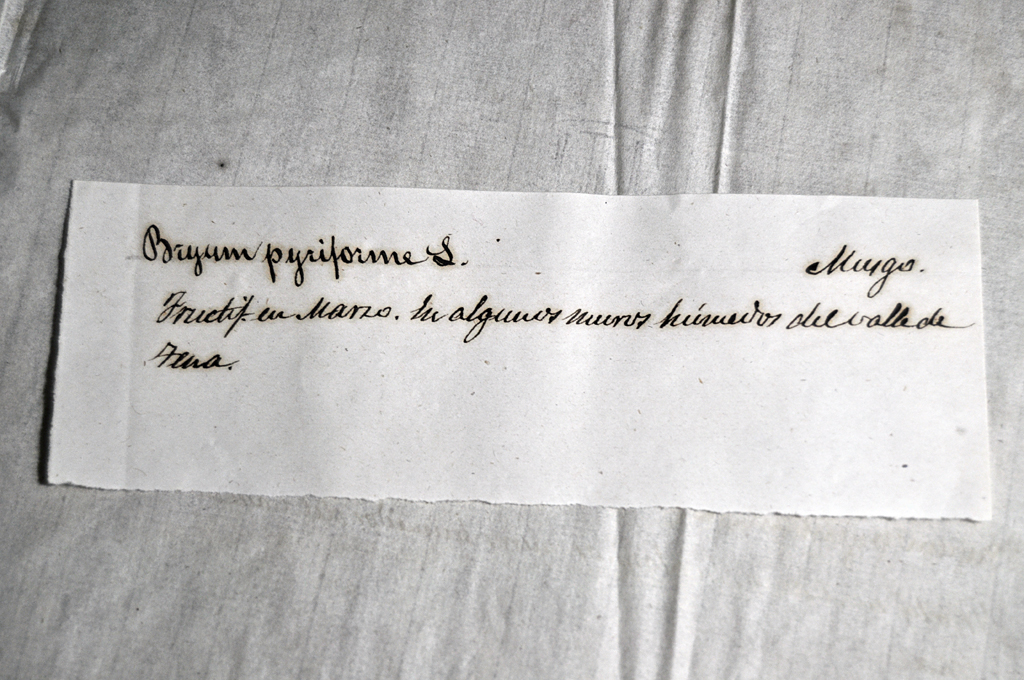 Bryum pyriforme L. Musgo.
Fructif. en Marzo. En algunos muros húmedos del valle de
Tena.